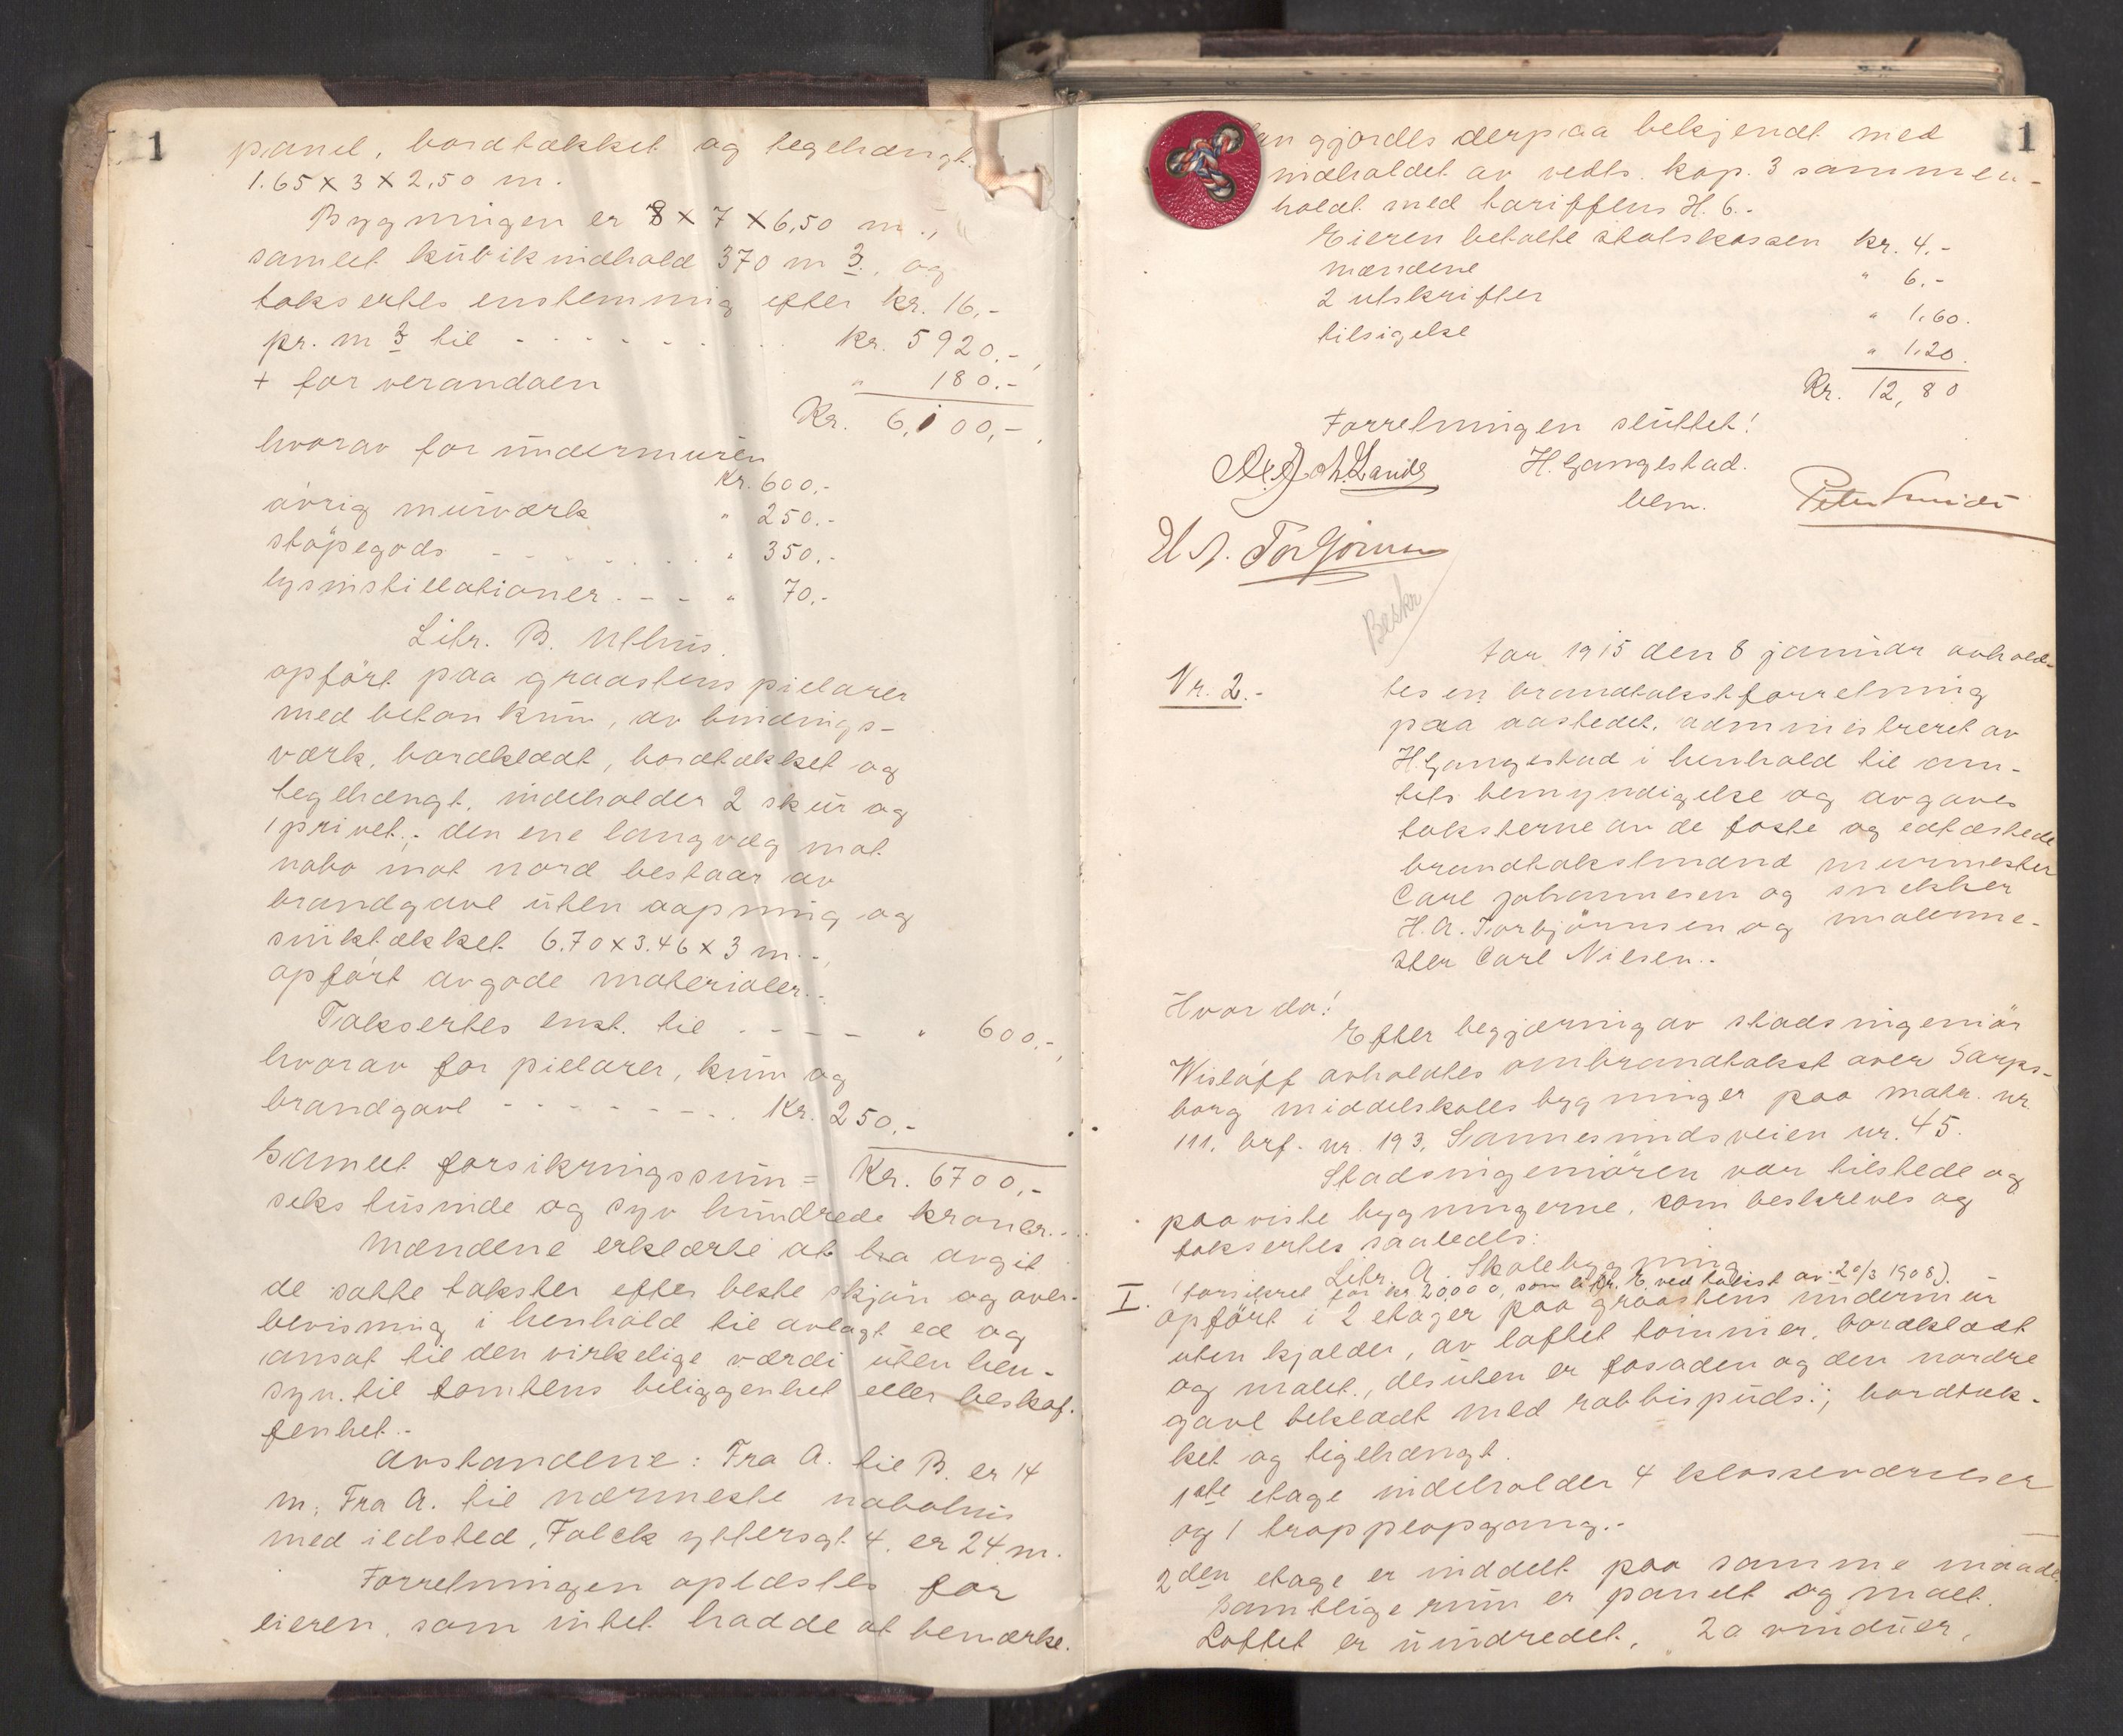 1
panel, bordtækket og teglhængt.
1.65 x 3 x 2,50 m.
Bygningen er 8 x 7 x 6,50 m.,
samlet kubikindhold 370 m 3., og
taksertes enstemmig efter kr. 16,-
pr. m 3 til - - - - - - - - kr. 5920.-,
+ for verandaen " 180.-
Kr. 6,100,-,
hvorav for undermuren
Kr. 600,-
øvrig murværk " 250.-
støpegods - - - - - - - " 350,-
lysinstillationer. - - - " 70,-
Litr. B. Uthus.
opført paa graastens pielarer
med betonkum, av bindings-
værk, bordklædt, bordtækket og
teglhængt, indeholder 2 skur og
1 privet.; den ene langvæg mot
nabo mot nord bestaar av
brandgavl uten aapning og
sinktækket 6.70 x 3.46 x 3 m. -,
opført av gode materialer. -.
Taksertes enst. til - - - - " 600.-,
hvorav for pielarer, kum og
brandgavl - - - - - - - - Kr. 250,-
Samlet forsikringssum = Kr. 6700,-
seks tusinde og syv hundrede kroner. -.
Mændene erklærte at ha avgit
de satte takster efter beste skjøn og over-
bevisning i henhold til avlagt ed og
ansat til den virkelige værdi uten hen-
syn. til tomtens beliggenhet eller beskaf-
fenhet. -
Avstandene: Fra A. til B. er 14
m; Fra A. til nærmeste nabohus
med ildsted, Falck yttersgt. 4. er 24 m.
Forretningen oplæstes for
eieren, som intet hadde at bemærke.
1
an gjordes derpaa bekjendt med
indholdet av vedts. kap. 3 sammen-
holdt med tariffens H. 6. -
Eieren betalte statskassen kr. 4.-
mændene " 6,-
2 utskrifter " 1,60.
tilsigelse " 1.20.
Kr. 12,80
Forretningen sluttet!
H. Gangestad.
bem.
Peter Smidt
Beskr
Aar 1915 den 8 januar avhold-
Nr. 2.-
tes en brandtakstforretning
paa aastedet, administreret av
H. Gangestad i henhold til am-
tets bemyndigelse og avgaves
taksterne av de faste og edfæstede
brandtakstmænd murmester
Carl Johannesen og snekker
H. A. Torbjørnsen og malerme-
ster Carl Nilsen. -
Hvorda!
Efter begjæring av stadsingeniør
Wisløff avholdtes ombrandtakst over Sarps-
borg middelskoles bygninger paa matr. nr
111. brf. nr. 193, Sannesundsveien nr. 45.
Stadsingeniøren var tilstede og
paaviste bygningerne, som beskreves og
taksertes saaledes:
Litr. A. Skolebygning
I. (forsikret for kr. 20000, som litr. E. ved takst av 20/3 1908).
opført i 2 etager paa graastens undermur
uten kjælder, av laftet tømmer, bordklædt
og malet., desuten er fasaden og den nordre
gavl beklædt med rabbispuds.; bordtæk-
ket og teglhængt.
1ste etage indeholder 4 klasseværelser
og 1 trappeopgang. -
2den etage er inddelt paa samme maade.
Samtlige rum er panelt og malt.
Loftet er uindredet. 20 vinduer,